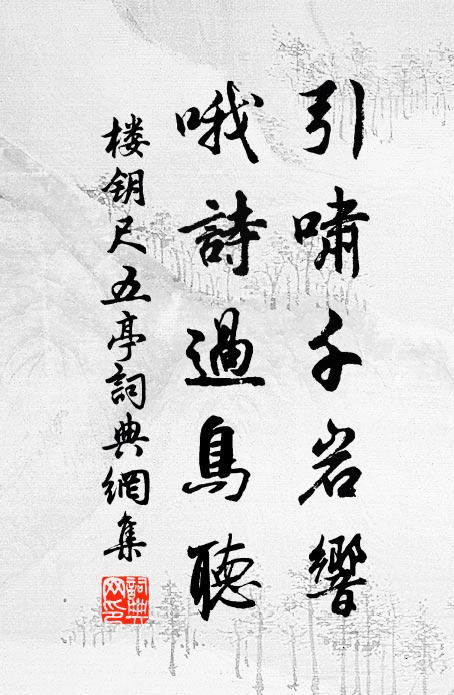 引嘯千岩響
哦詩過鳥聽
楼钥尺五亭詞典網集
詞典